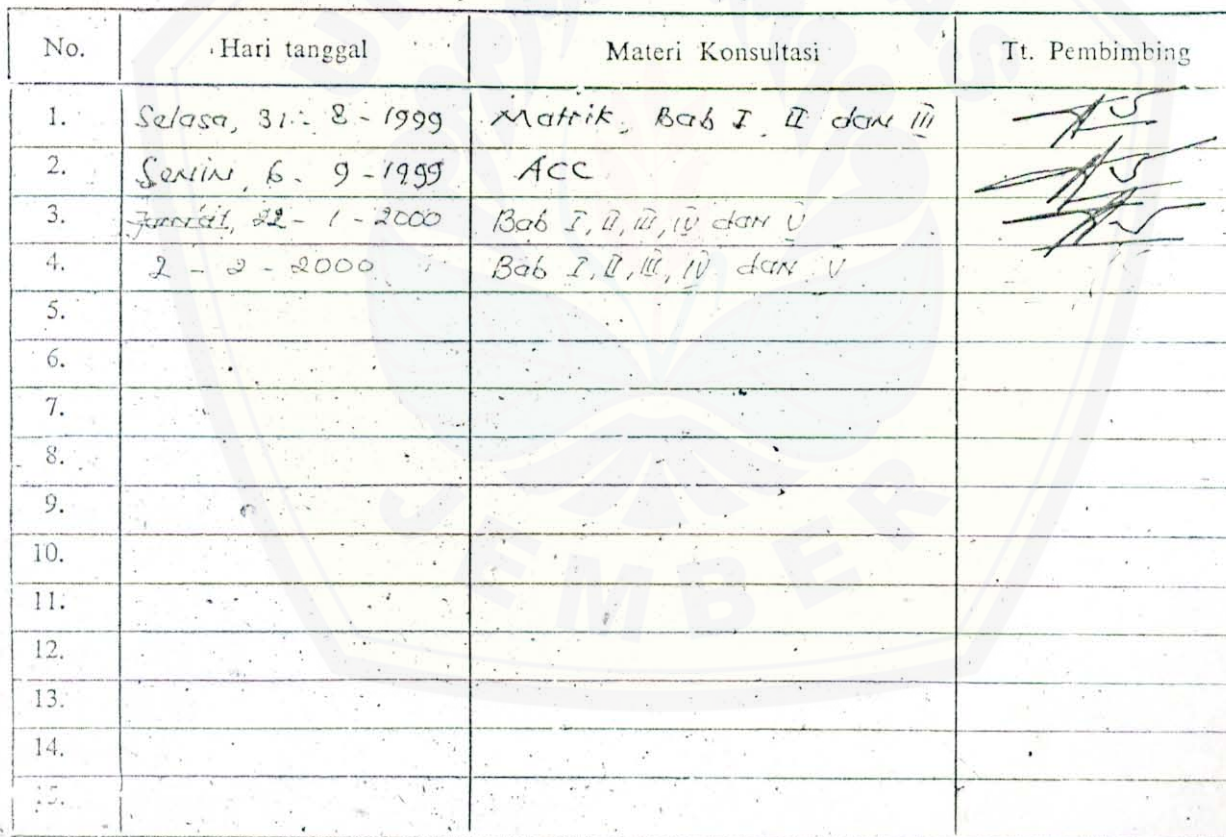 No. Hari tanggal Materi Konsultasi Tt. Pembimbing
1. Selasa, 31 - 8 - 1999 Matrik, Bab I, II dan III
2. Senin, 6 - 9 - 1999 ACC
3. Jum'at, 22 - 1 - 2000 Bab I, II, III, IV dan V
4. 2 - 2 - 2000 Bab I, II, III, IV dan V
5.
6.
7.
8.
9.
10.
11.
12.
13.
14.
15.
JEMBER